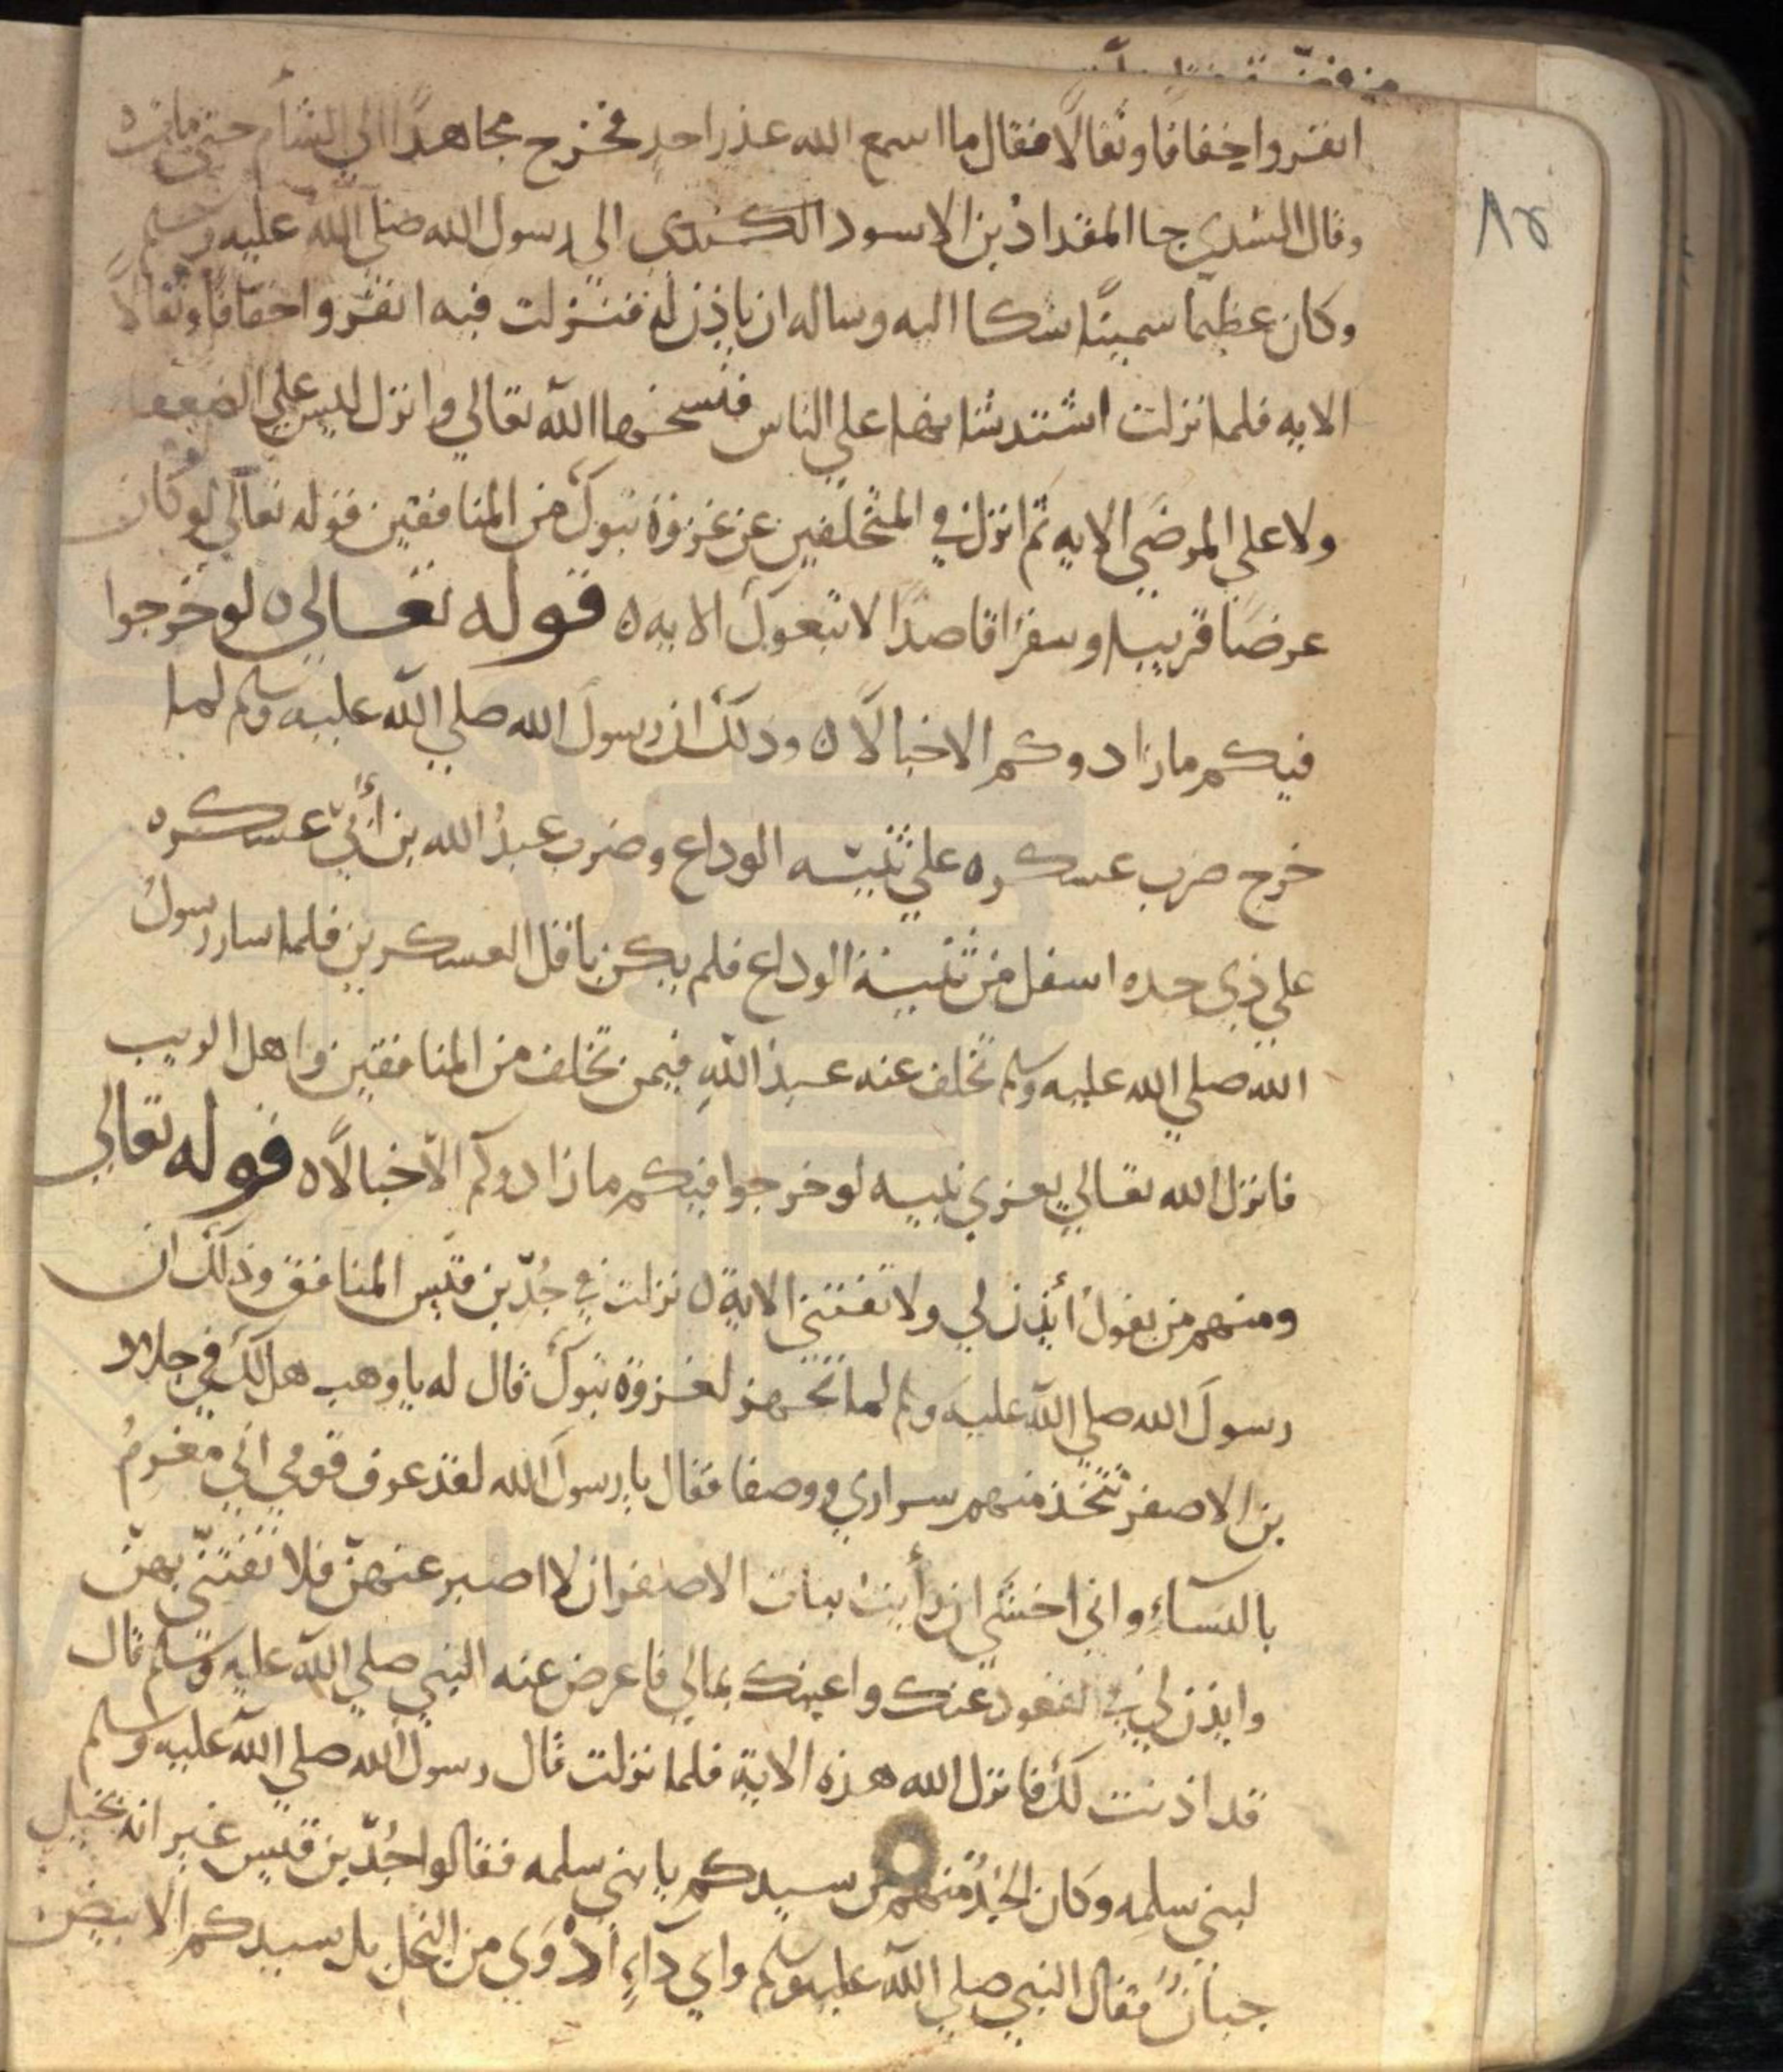 انفروا خفافا وثقالًا فقال ما اسمع الله عذر احدٍ فخرج مجاهدًا الي الشام حتي مات ه
وقال السُدي جا المقداد بن الاسود الكندي الي رسول الله صلي الله عليه وسلم
وكان عظيما سمينًا شكا اليه وساله ان ياذن له فنزلت فيه انفروا خفافًا وثقالًا
الايه فلما نزلت اشتد شانها علي الناس فنسخها الله تعالي وانزل ليس علي الضعفا
ولا علي المرضَي الايه ثم انزل في المتخلفين عن غزوة تبوك من المنافقين قوله تعالي لو كان
عرضًا قريبا وسفرًا قاصدًا لاتبعوك الايه ه قوله تعالي ه لو خرجوا
فيكم ما زادوكم الا خبالًا ه وذلك ان رسول الله صلي الله عليه وسلم لما
خرج ضرب عسكره علي ثنيّه الوداع وضرب عبدُ الله بن أُبيّ عسكره
علي ذي حده اسفل من ثنية الوداع فلم يكن باقل العسكرين فلما سار رسولُ
الله صلي الله عليه وسلم تخلف عنه عبد اللهِ فيمن تخلف من المنافقين واهل الريب
فانزل الله تعالي يعزي نبيه لو خرجوا فيكم ما زادوكم الّا خبالًا ه قوله تعالي
ومنهم من يقولُ أئذن لي ولا تفتني الاية ه نزلت في جُدّ بن قيس المنافق وذلك ان
رسولَ الله صلي الله عليه وسلم لما تجهز لغزوة تبوك قال له يا وهب هل لك في جلاد
بن الاصفر تتخذ منهم سراري ووصفا فقال يا رسولَ الله لقد عرف قومي اني مغرمُ
بالنسآءِ واني اخشَي ان رأيت بنات الاصفر ان لا اصبر عنهنّ فلا تفتنّي بهنّ
وايذن لي في القعود عنك واعينك بمالي فاعرض عنه النبي صلي الله عليه وسلم وقال
قد اذنت لك فانزل الله هذه الاية فلما نزلت قال رسول الله صلي الله عليه وسلم
لبني سلمه وكان الجَدُ منهم من سيدكم يا بني سلمه فقالوا جُدّ بن قيس غير انه بخيل
جبانٌ فقال النبي صلي الله عليه وسلم واي دآءٍ ادْوَي من البخل بل سيدكم الابيض